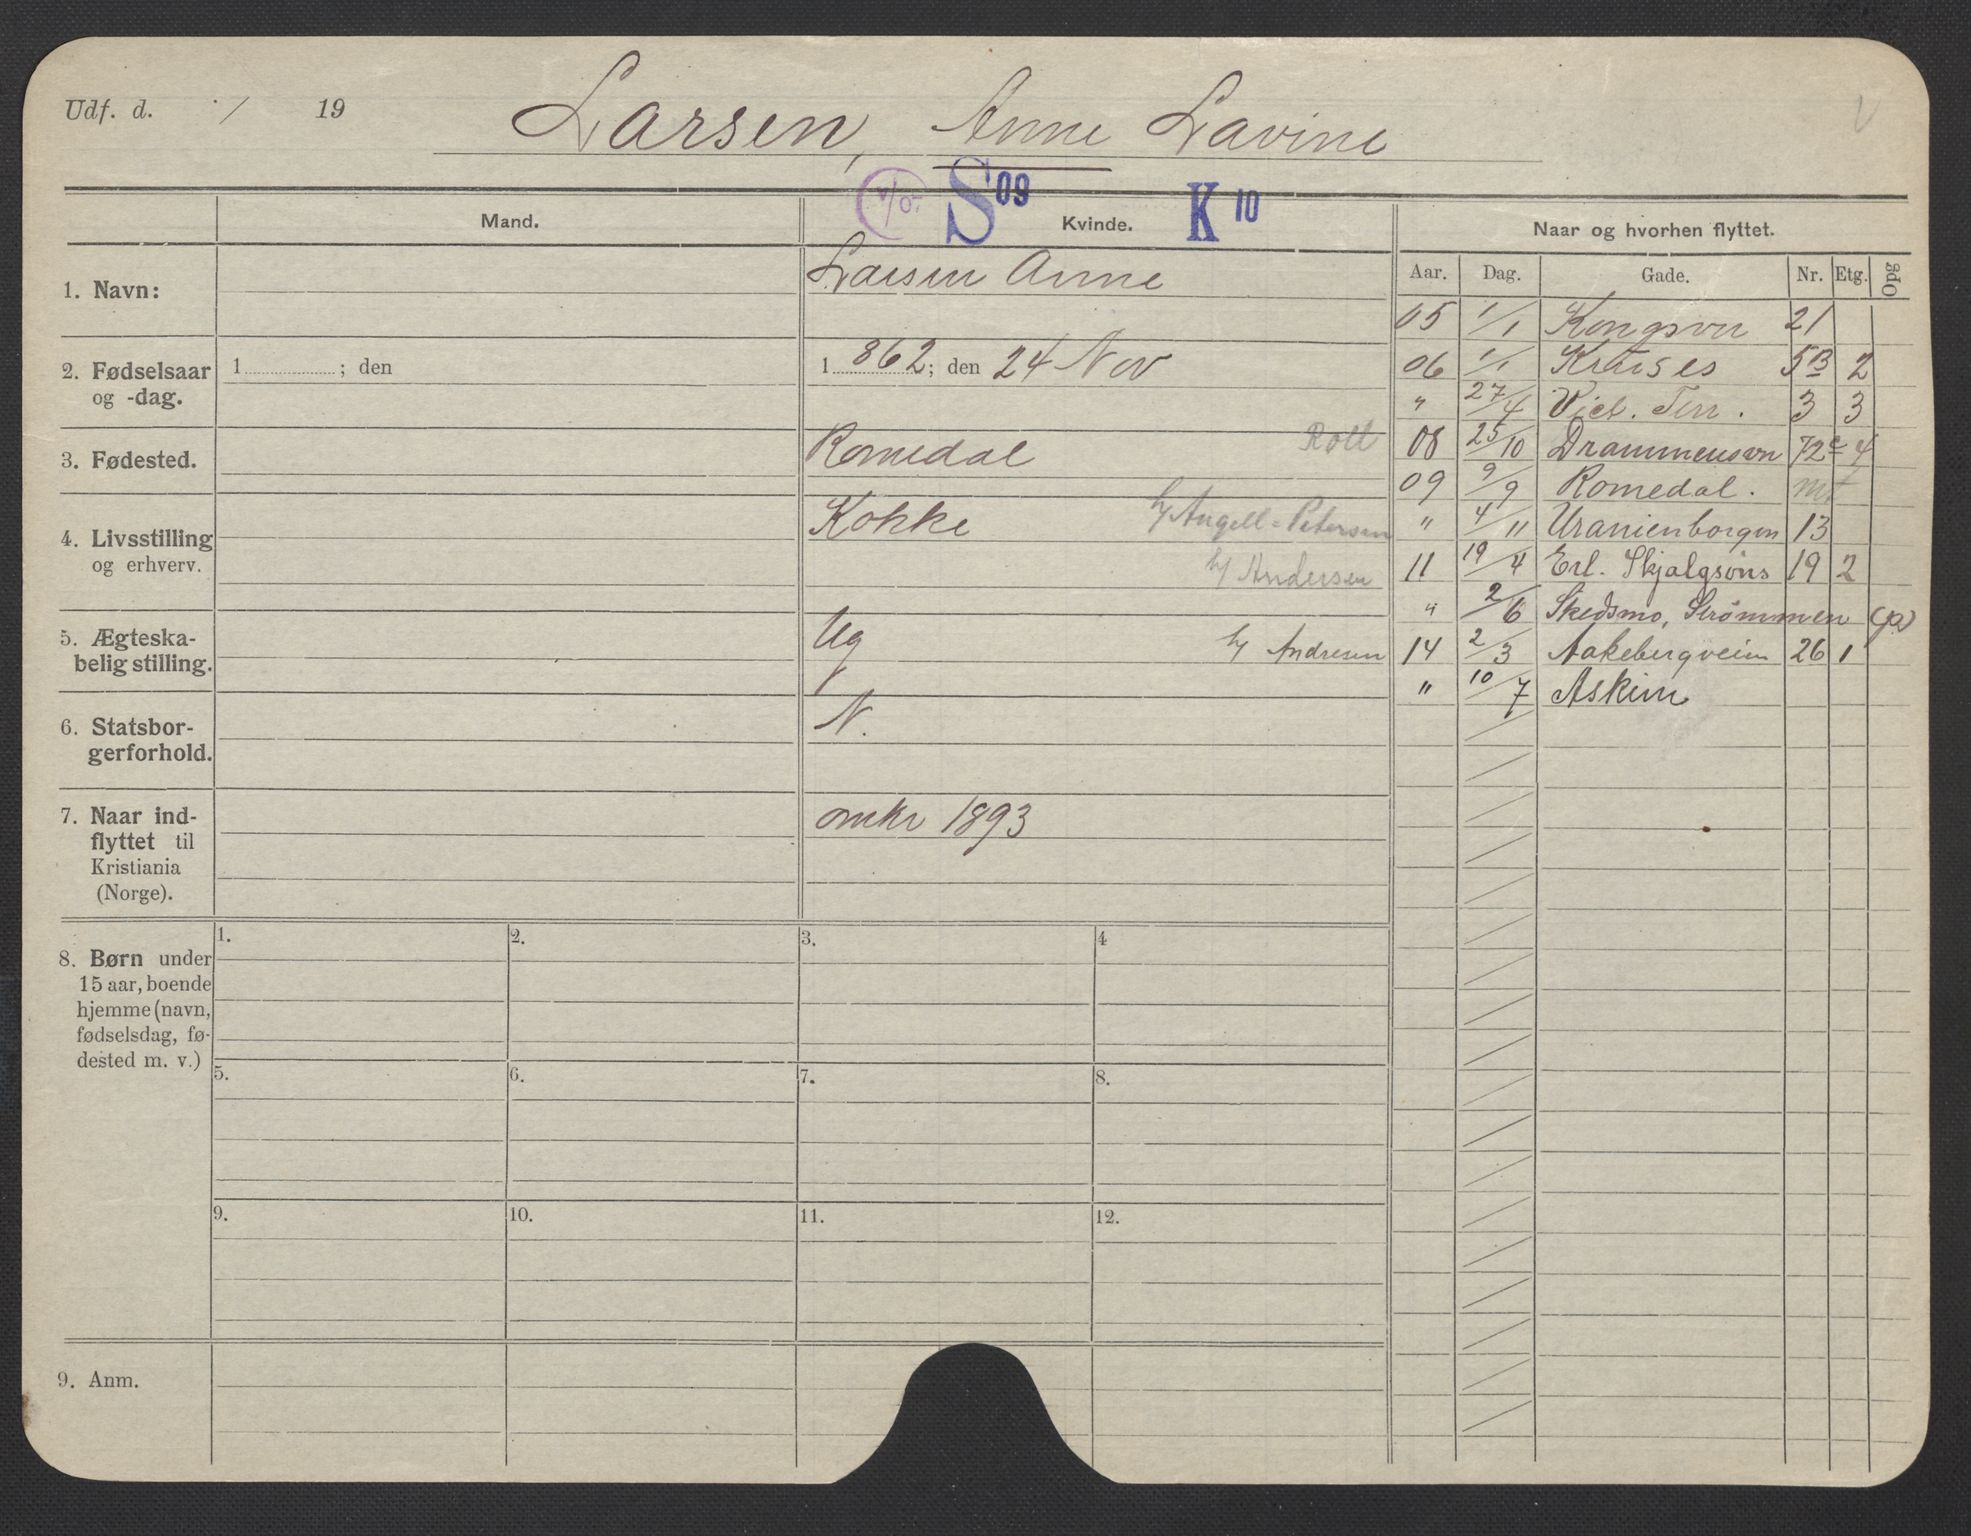 Udf. d. / 19
Larsen, Anne Lavine
S 09 K 10
Mand. Kvinde. Naar og hvorhen flyttet.
Aar. Dag. Gade. Nr. Etg. Opg
1. Navn: Larsen Anne
2. Fødselsaar og -dag. 1 ; den 1 862; den 24 Nov
3. Fødested. Romedal Roll
4. Livsstilling og erhverv. Kokke h/ Angell-Petersen
h/ Andersen
5. Ægteska-
belig stilling. Ug h/ Andresen
6. Statsbor-
gerforhold. N.
7. Naar ind-
flyttet til
Kristiania
(Norge). omkr 1893
05 1/1 Kongsvn 21
06 1/1 Krafses 5B 2
" 27/4 Vict. Terr. 3 3
08 25/10 Drammensvn 72c 4
09 9/9 Romedal.
" 4/11 Uranienborgvn 13
11 19/4 Erl. Skjalgsøns 19 2
" 2/6 Skedsmo, Strømmen
14 2/3 Aakebergveien 26 1
" 10/7 Askim
8. Børn under
15 aar, boende
hjemme (navn,
fødselsdag, fø-
dested m. v.)
1. 2. 3. 4
5. 6. 7. 8.
9. 10. 11. 12.
9. Anm.